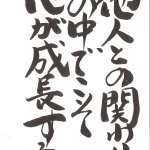 他人との関わり
の中でこそ
心が成長する